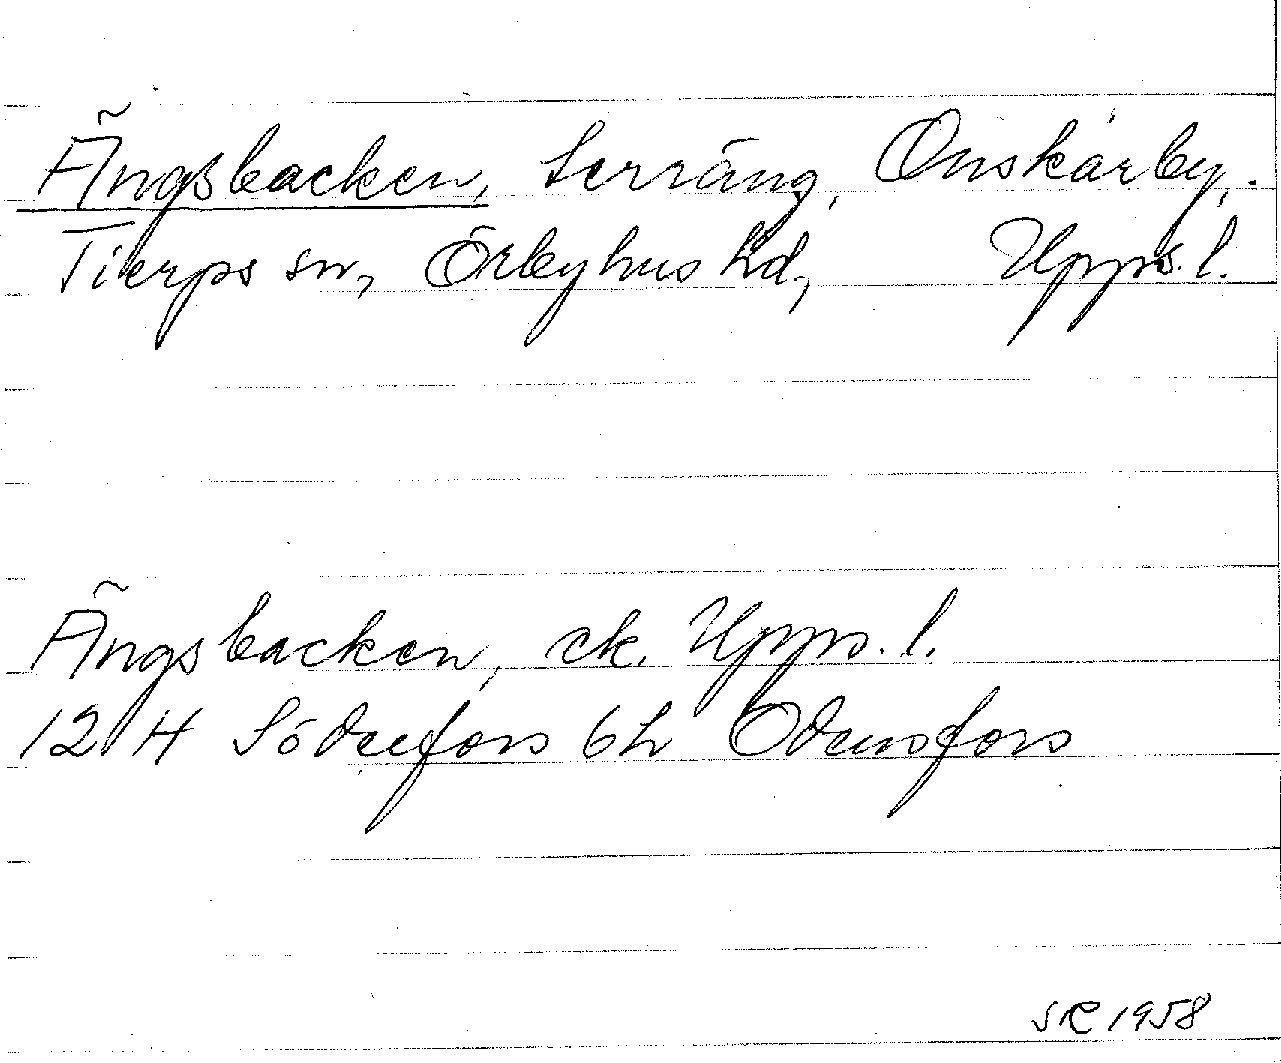 Ängsbacken, terräng, Onskarby,.
Tierps sn, Örbyhus hd, Upps. l.
Ängsbacken, ek. Upps. l.
12 H Söderfors 6h Odensfors
SR 1958